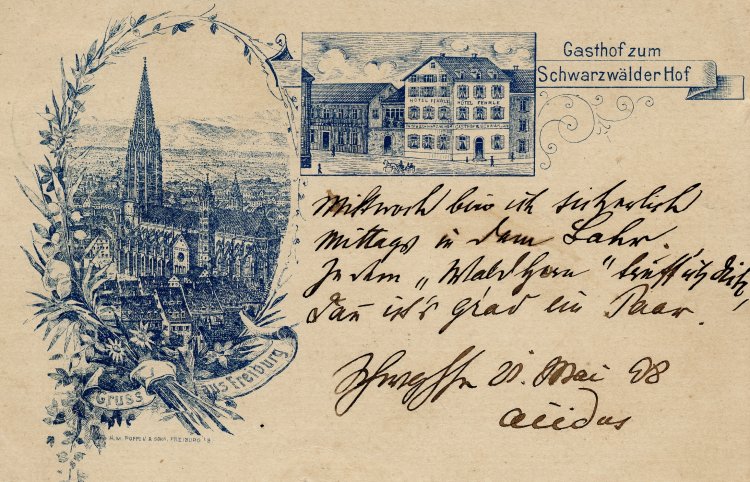 Gasthof zum
Schwarzwälder Hof
HOTEL FEHRLE HOTEL FEHRLE
Mittwoch bin ich sicherlich
Mittags in dem Lahr.
In dem „Waldhorn“ treff ich dich,
Dan ist's grad ein Paar.
21. Mai 98
Gruss aus Freiburg
FREIBURG i/B